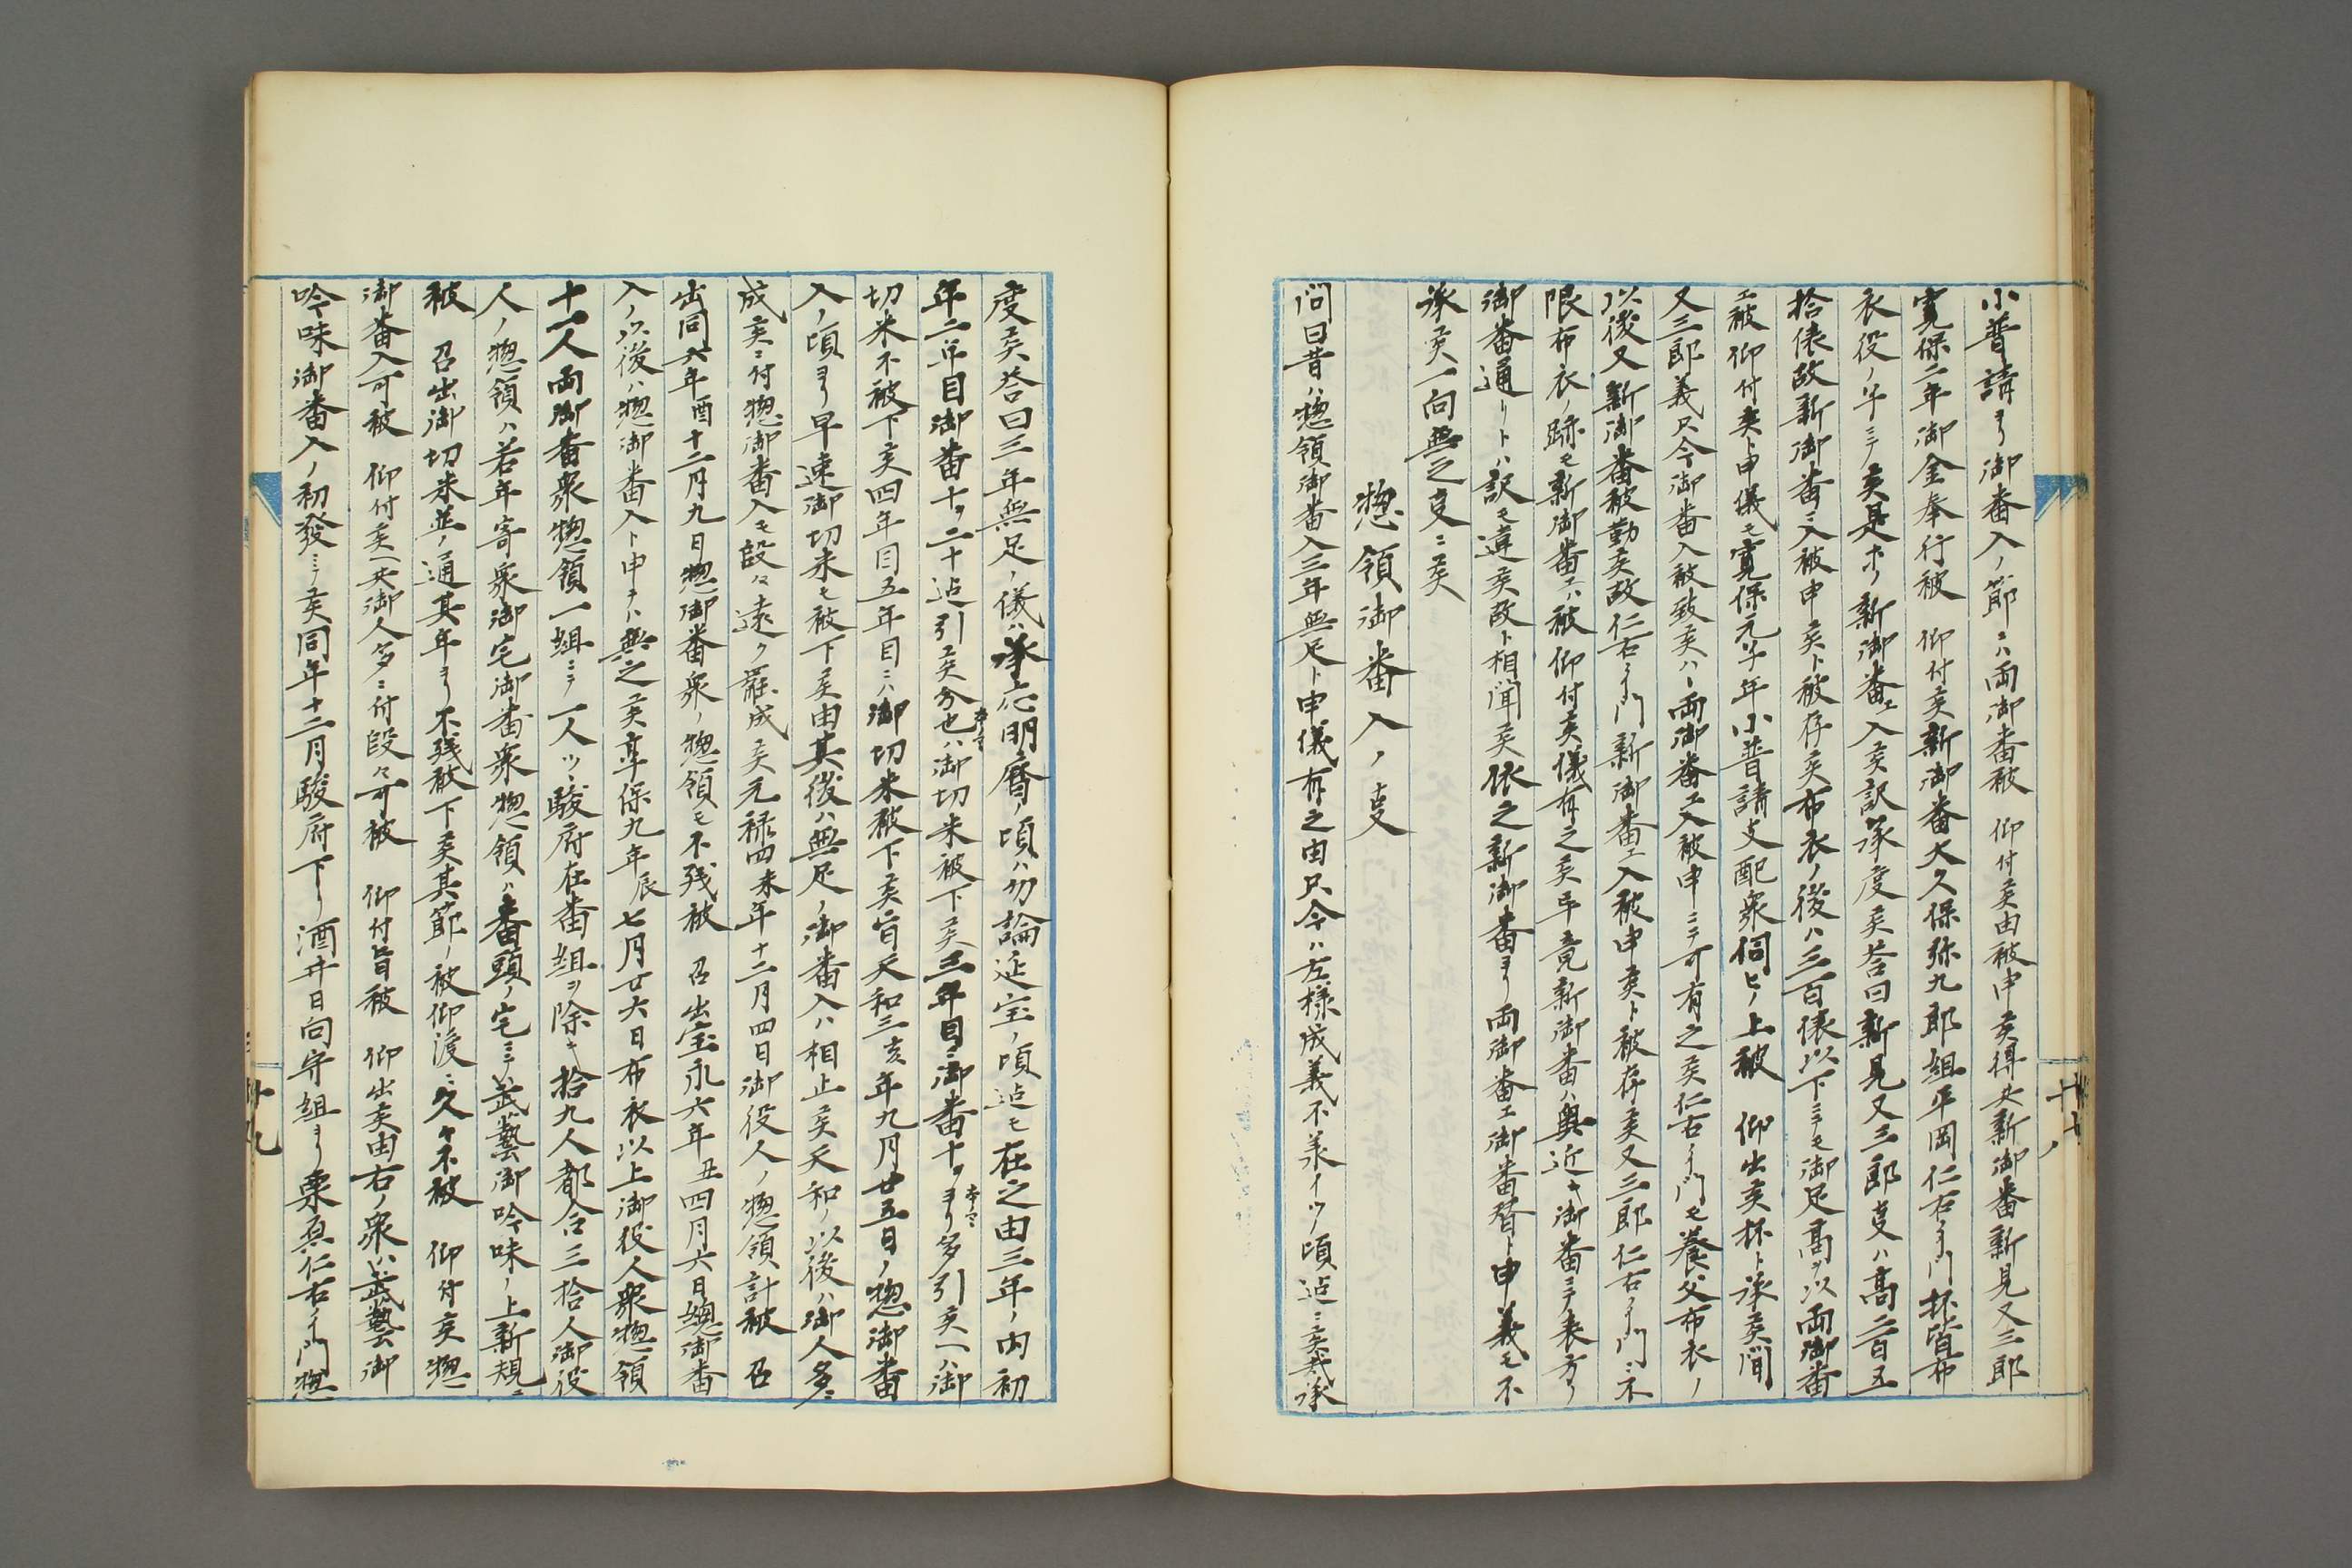 小普請ヨリ御番入ノ節ニハ両御番被　仰付候由被申候得共新御番新見又三郎
寛保二年御金奉行被　仰付候新御番大久保弥九郎組平岡仁右衛門抔皆布
衣役ノ子ニテ候是等ノ新御番エ入候訳承度候答曰新見又三郎叓ハ高二百五
拾俵故新御番ニ入被申候ト被存候布衣ノ後ハ三百俵以下ニテモ御足高ヲ以両御番
エ被仰付候ト申儀モ寛保元年小普請支配衆伺ヒノ上被　仰出候抔ト承候間
又三郎義只今御番入被致候ハヽ両御番エ入被申ニテ可有之候仁右衛門モ養父布衣ノ
以後又新御番被勤候故仁右衛門新御番エ入被申候ト被存候又三郎仁右衛門ニ不
限布衣ノ跡モ新御番エハ被　仰付候儀有之候畢竟新御番ハ奥近キ御番ニテ表方ノ
御番通リトハ訳モ違候故ト相聞候依之新御番ヨリ両御番エ御番替ト申義モ不
承候一向無之叓ニ候
惣領御番入ノ叓
問曰昔ハ惣領御番入三年無足ト申儀有之由只今ハ左様成義不承イツ頃迠ニ候哉承
度候答曰三年無足ノ儀ハ承応明暦ノ頃ハ勿論延宝ノ頃迠モ在之由三年ノ内初
年二年目御番十ヲ二十迠引候分也ハ御切米被下候三年目ニ御番十ヲヨリ多引候ヘハ御
切米不被下候四年目五年目ニハ御切米被下候旨天和三亥年九月廿五日ノ惣御番
入ノ頃ヨリ早速御切米モ被下候由其後ハ無足ノ御番入ハ相止候天和ノ以後ハ御人多ニ
成候ニ付惣御番入モ段々遠ク罷成候元禄四未年十二月四日御役人ノ惣領計被　召
出同六年酉十二月九日惣御番衆ノ惣領モ不残被　召出宝永六年丑四月六日總御番
入ノ以後ハ惣御番入ト申ヲハ無之候享保九年辰七月廿六日布衣以上御役人衆惣領
十一人両御番衆惣領一組ニテ一人ツヽ駿府在番組ヲ除キ拾九人都合三拾人御役
人ノ惣領ハ若年寄衆御宅御番衆惣領ハ番頭ノ宅ニテ武藝御吟味ノ上新規ニ
被　召出御切米並ノ通其年ヨリ不残被下候其節ノ被仰渡ニ久々不被　仰付候惣
御番入可被　仰付候ヘ共御人多ニ付段々可被　仰付旨被　仰出候由右ノ衆ハ武藝御
吟味御番入ノ初發ニテ候同年十二月駿府下リ酒井日向守組ヨリ栗原仁右衛門惣